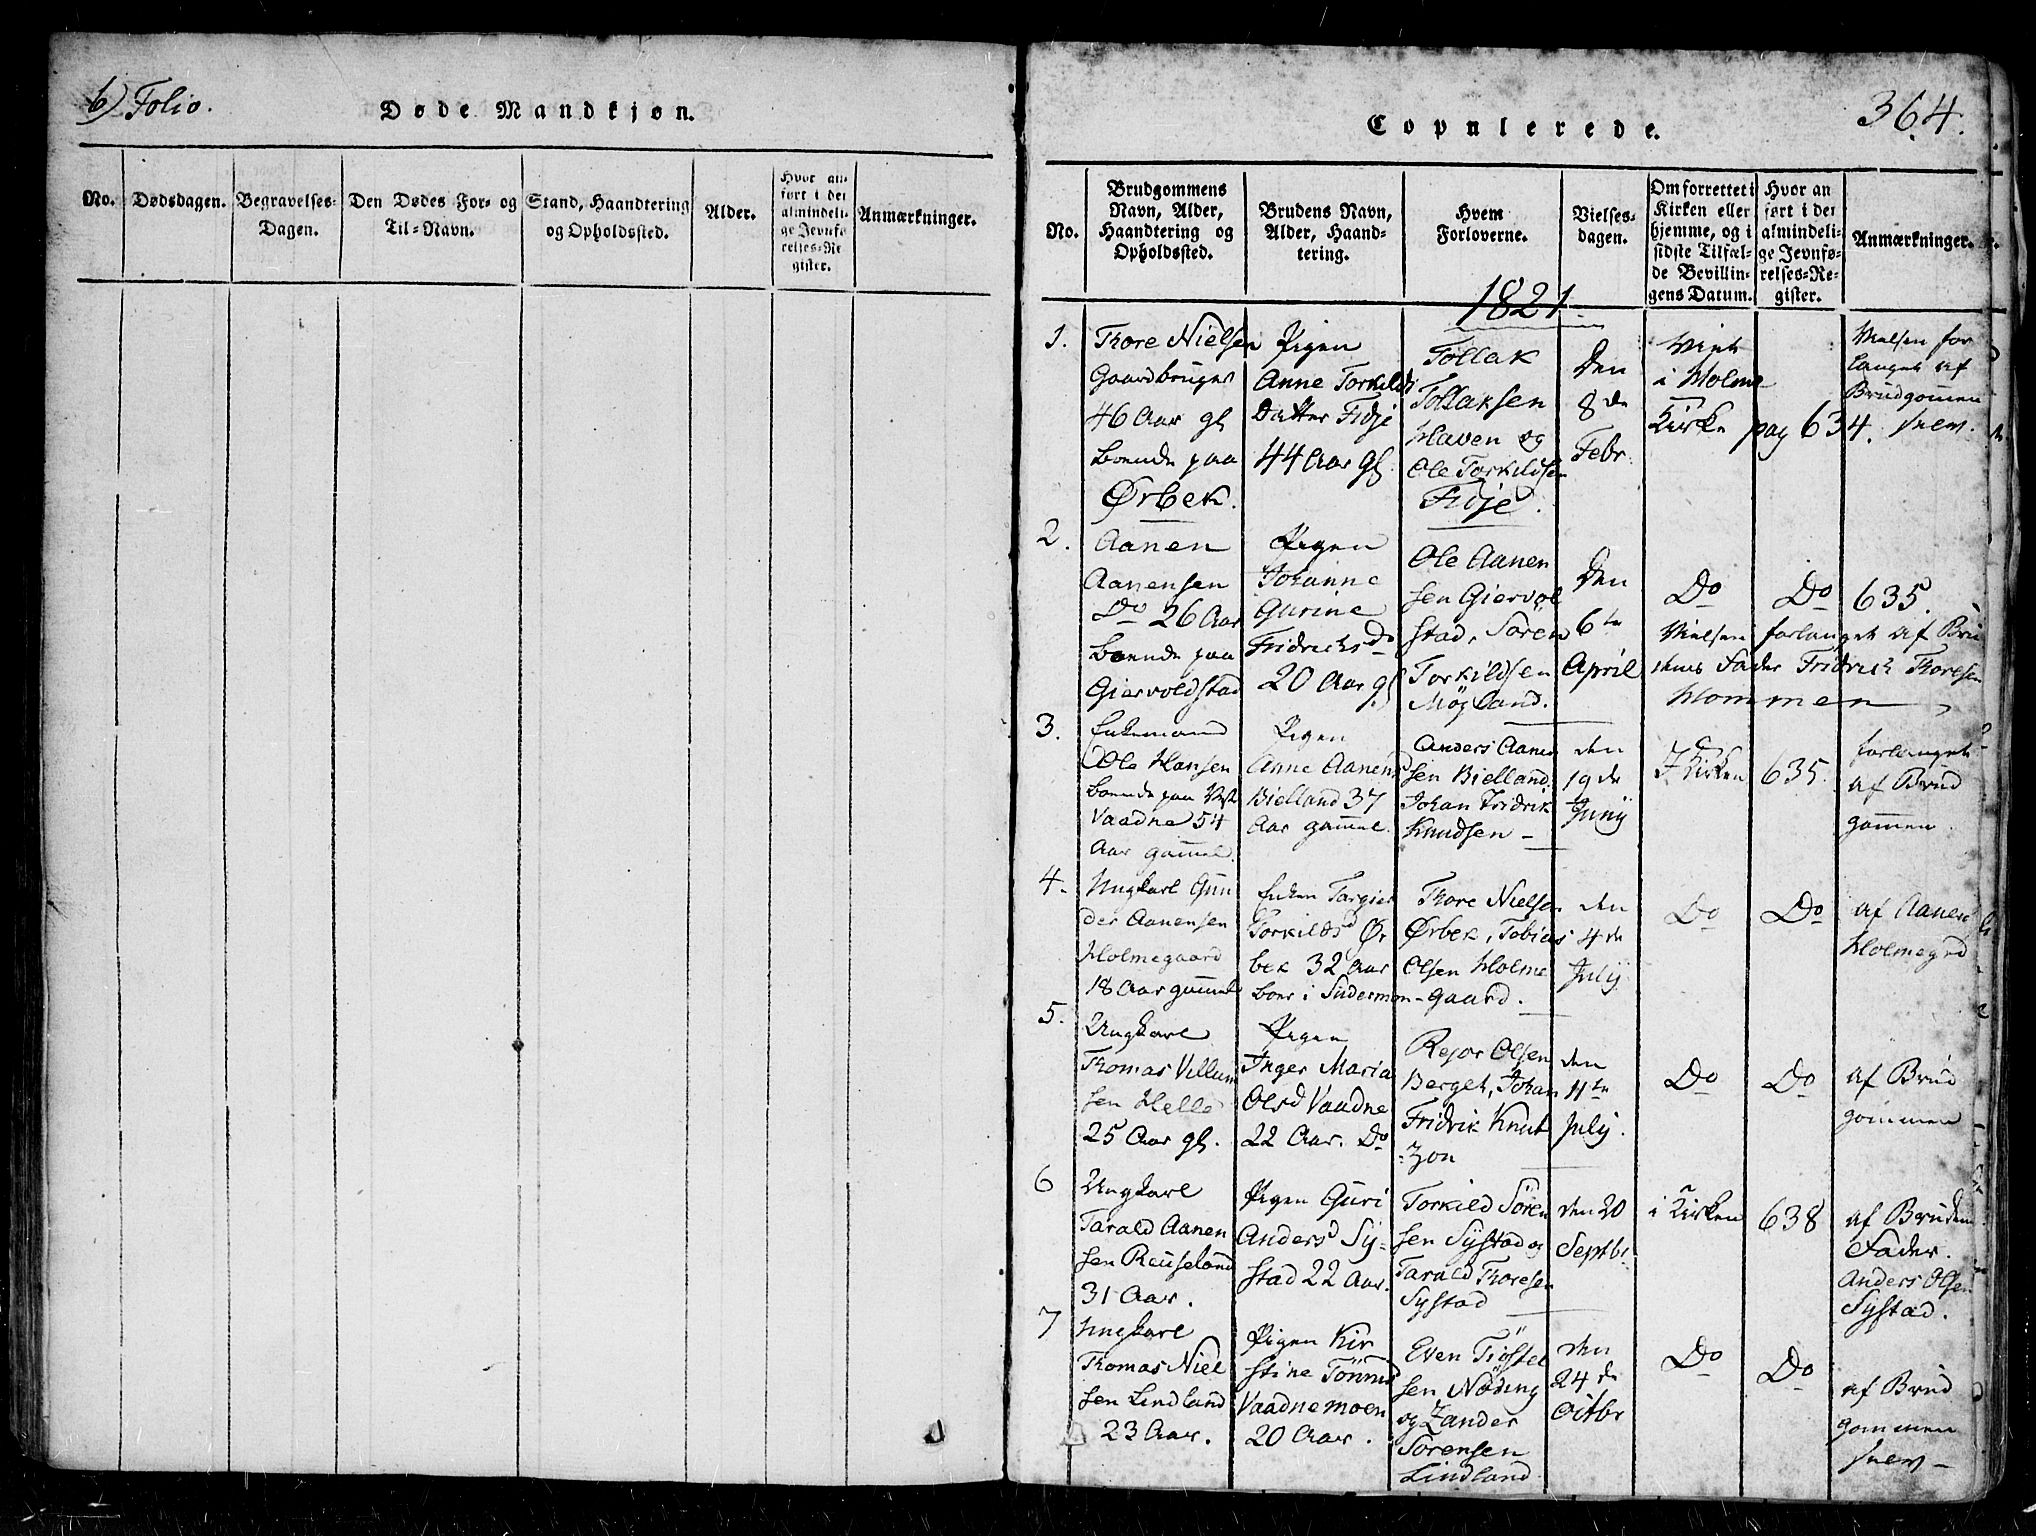 b) Folio.
Døde Mandkjøn.
No.
Dødsdagen.
Begravelses-
Dagen.
Den Dødes For- og
Til-Navn.
Stand, Haandtering
og Opholdssted.
Alder.
Hvor an-
ført i det
almindeli-
ge Jevnfø-
relses-Re-
gister.
Anmærkninger.
Copulerede.
364.
No.
Brudgommens
Navn, Alder,
Haandtering og
Opholdssted.
Brudens Navn,
Alder, Haand-
tering.
Hvem
Forloverne.
Vielses-
dagen.
Om forrettet i
Kirken eller
hjemme, og i
sidste Tilfæl-
de Bevillin-
gens Datum.
Hvor an
ført i det
almindeli-
ge Jevnfø-
relses-Re-
gister.
Anmærkninger.
1821
1.
Thore Nielsen
Gaardbruger
46 Aar gl
boende paa
Ørbek.
Pigen
Anne Torkilds
Datter Fidje
44 Aar gl.
Tollak
Tollaksen
Haven og
Ole Torkildsen
Fidje.
Den
8de
Febr.
Viet
i Holme
Kirke
pag 634.
Vielsen for
langet af
Brudgomen
selv.
2.
Aanen
Aanensen
Do 26 Aar
boende paa
Giervoldstad
Pigen
Johanne
Gurine
Fridrichsd
20 Aar gl
Ole Aanen
sen Giervol
stad, Søren
Torkildsen
Møgland.
Den
6te
April
Do
Do
635.
Vielsen forlanget af Bru
dens Fader Fridrich Thoresen
Hommen
3.
Enkemand
Ole Hansen
boende paa Vest
Vaadne 54
Aar gamel.
Pigen
Anne Aanensd
Bielland 37
Aar gamel.
Anders Aanen
sen Bielland
Johan Fridrik
Knudsen -
den
19de
Junij
I Kirken
635.
forlanget
af Brud
gomen.
4.
Ungkarl Gun
der Aanensen
Holmegaard
18 Aar gamel
Enken Targier
Torkildsd Ør
bek 32 Aar
Thore Nielsen
Ørbek, Tobias
Olsen Holme
-gaard.
den
4de
Julij
Do
Do
af Aanen
Holmegrd
5.
Ungkarl
Thomas Villum
sen Helle
25 Aar gl.
Pigen
Inger Maria
Olsd Vaadne
22 Aar. Do
Rejor Olsen
Berget, Johan
Fridrik Knut
:zon
den
11te
Julij.
Do
Do
af Brud
gommen
6
Ungkarl
Tarald Aanen
sen Reuseland
31 Aar.
Pigen Guri
Andersd Sy-
stad 22 Aar.
Torkild Søren
sen Systad og
Tarald Thoresen
Systad
den 20
Septbr
i Kirken
638
af Brudens
Fader.
Anders Olsen
Systad.
7
Ungkarl
Thomas Niel
sen Lindland
23 Aar.
Pigen Kir
stine Tønnesd
Vaadnemoen
20 Aar.
Even Tjøstel
sen Nøding
og Zander
Sørensen
Lindland
den
24de
Octbr
Do
Do
af Brud
gommen
selv -